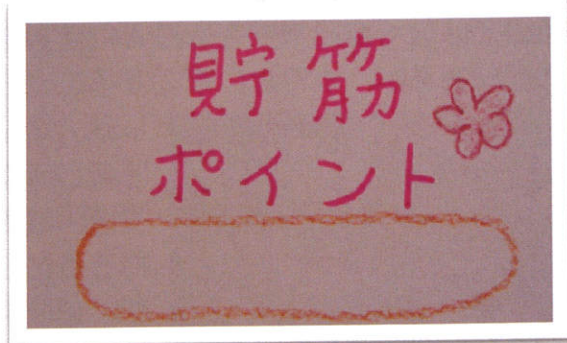 貯筋
ポイント